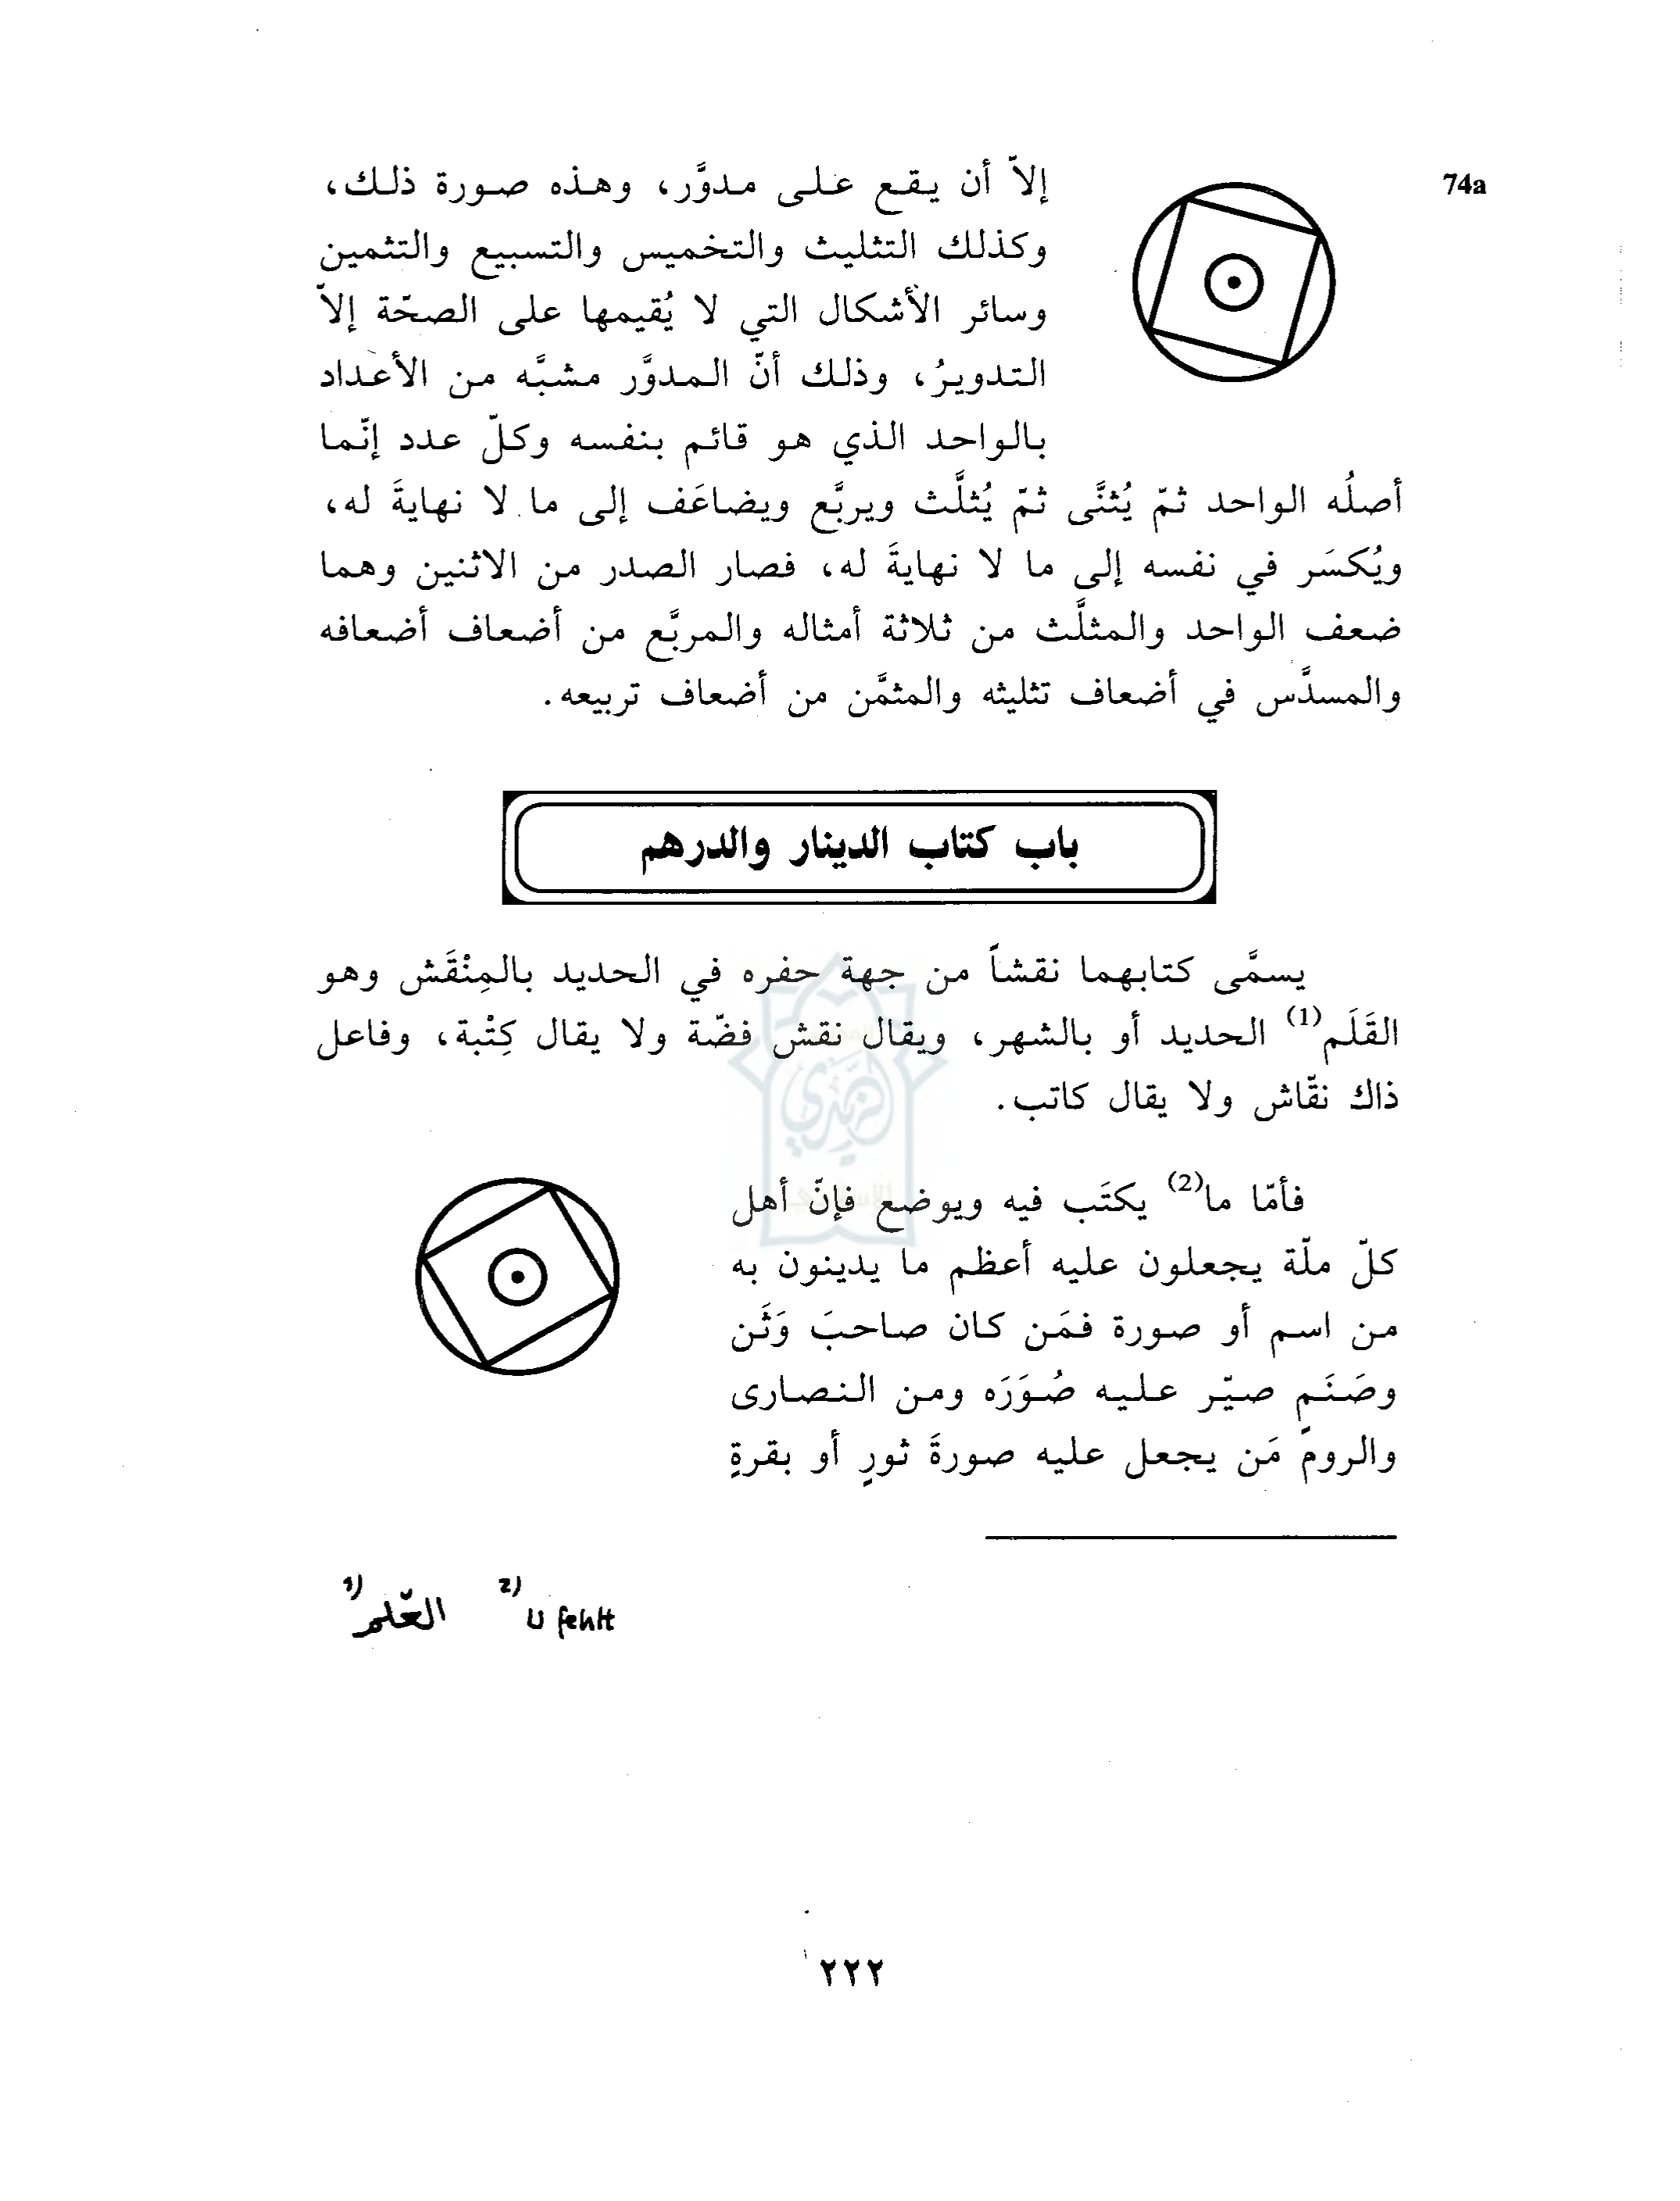 74a
إلاّ أن يقع على مدوَّر، وهذه صورة ذلك،
وكذلك التثليث والتخميس والتسبيع والتثمين
وسائر الأشكال التي لا يُقيمها على الصحّة إلاّ
التدويرُ، وذلك أنّ المدوَّر مشبَّه من الأعداد
بالواحد الذي هو قائم بنفسه وكلّ عدد إنّما
أصلُه الواحد ثمّ يُثنَّى ثمّ يُثلَّث ويربَّع ويضاعَف إلى ما لا نهايةَ له،
ويُكسَر في نفسه إلى ما لا نهايةَ له، فصار الصدر من الاثنين وهما
ضعف الواحد والمثلَّث من ثلاثة أمثاله والمربَّع من أضعاف أضعافه
والمسدَّس في أضعاف تثليثه والمثمَّن من أضعاف تربيعه.
باب كتاب الدينار والدرهم
يسمَّى كتابهما نقشاً من جهة حفره في الحديد بالمِنْقَش وهو
القَلَم(1) الحديد أو بالشهر، ويقال نقش فضّة ولا يقال كِتْبة، وفاعل
ذاك نقّاش ولا يقال كاتب.
فأمّا ما(2) يكتَب فيه ويوضع فإنّ أهل
كلّ ملّة يجعلون عليه أعظم ما يدينون به
من اسم أو صورة فمَن كان صاحبَ وَثَن
وصَنَمٍ صيّر عليه صُوَرَه ومن النصارى
والروم مَن يجعل عليه صورةَ ثورٍ أو بقرةٍ
1) العلم 2) U fehlt
٢٢٢